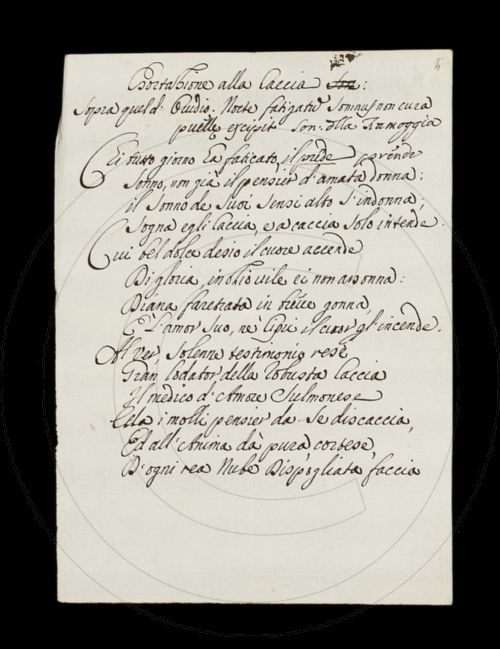 Esortazione alla Caccia
Sopra quel d'Ovidio. Nocte fatigatum Somnus non cura
puellę excipit. Son: della Ramoggia
Ei tutto giorno hà faticato, il prende
Sonno, non già il pensier d'amata donna:
il Sonno de Suoi Sensi alto s'indonna;
Sogna egli Caccia, e a caccia solo intende.
Cui bel dolce desio il cuore accende
Di gloria, in olio vile ei non assonna:
Diana faretrata in breve gonna,
E l'amor Suo, nè Cipri il cuor gl'incende.
Al ver Solenne testimonio rese
Gran lodator della robusta Caccia
Il medico d'Amore Sulmonese
Ella i molli pensier da Se discaccia,
Ed all'Anima dà pura, cortese,
D'ogni rea Nube Dispogliata faccia